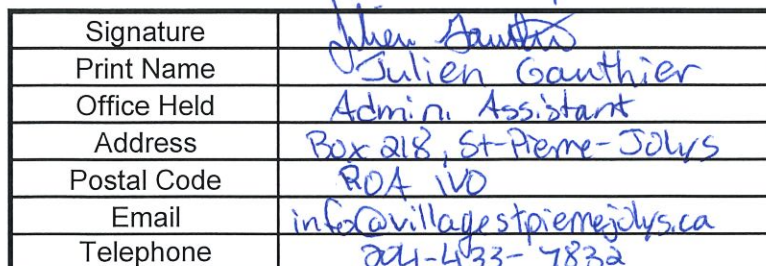 Signature Julien Gauthier
Print Name Julien Gauthier
Office Held Admin. Assistant
Address Box 218, St-Pierre-Jolys
Postal Code R0A 1V0
Email info@villagestpierrejolys.ca
Telephone 204-433-7832